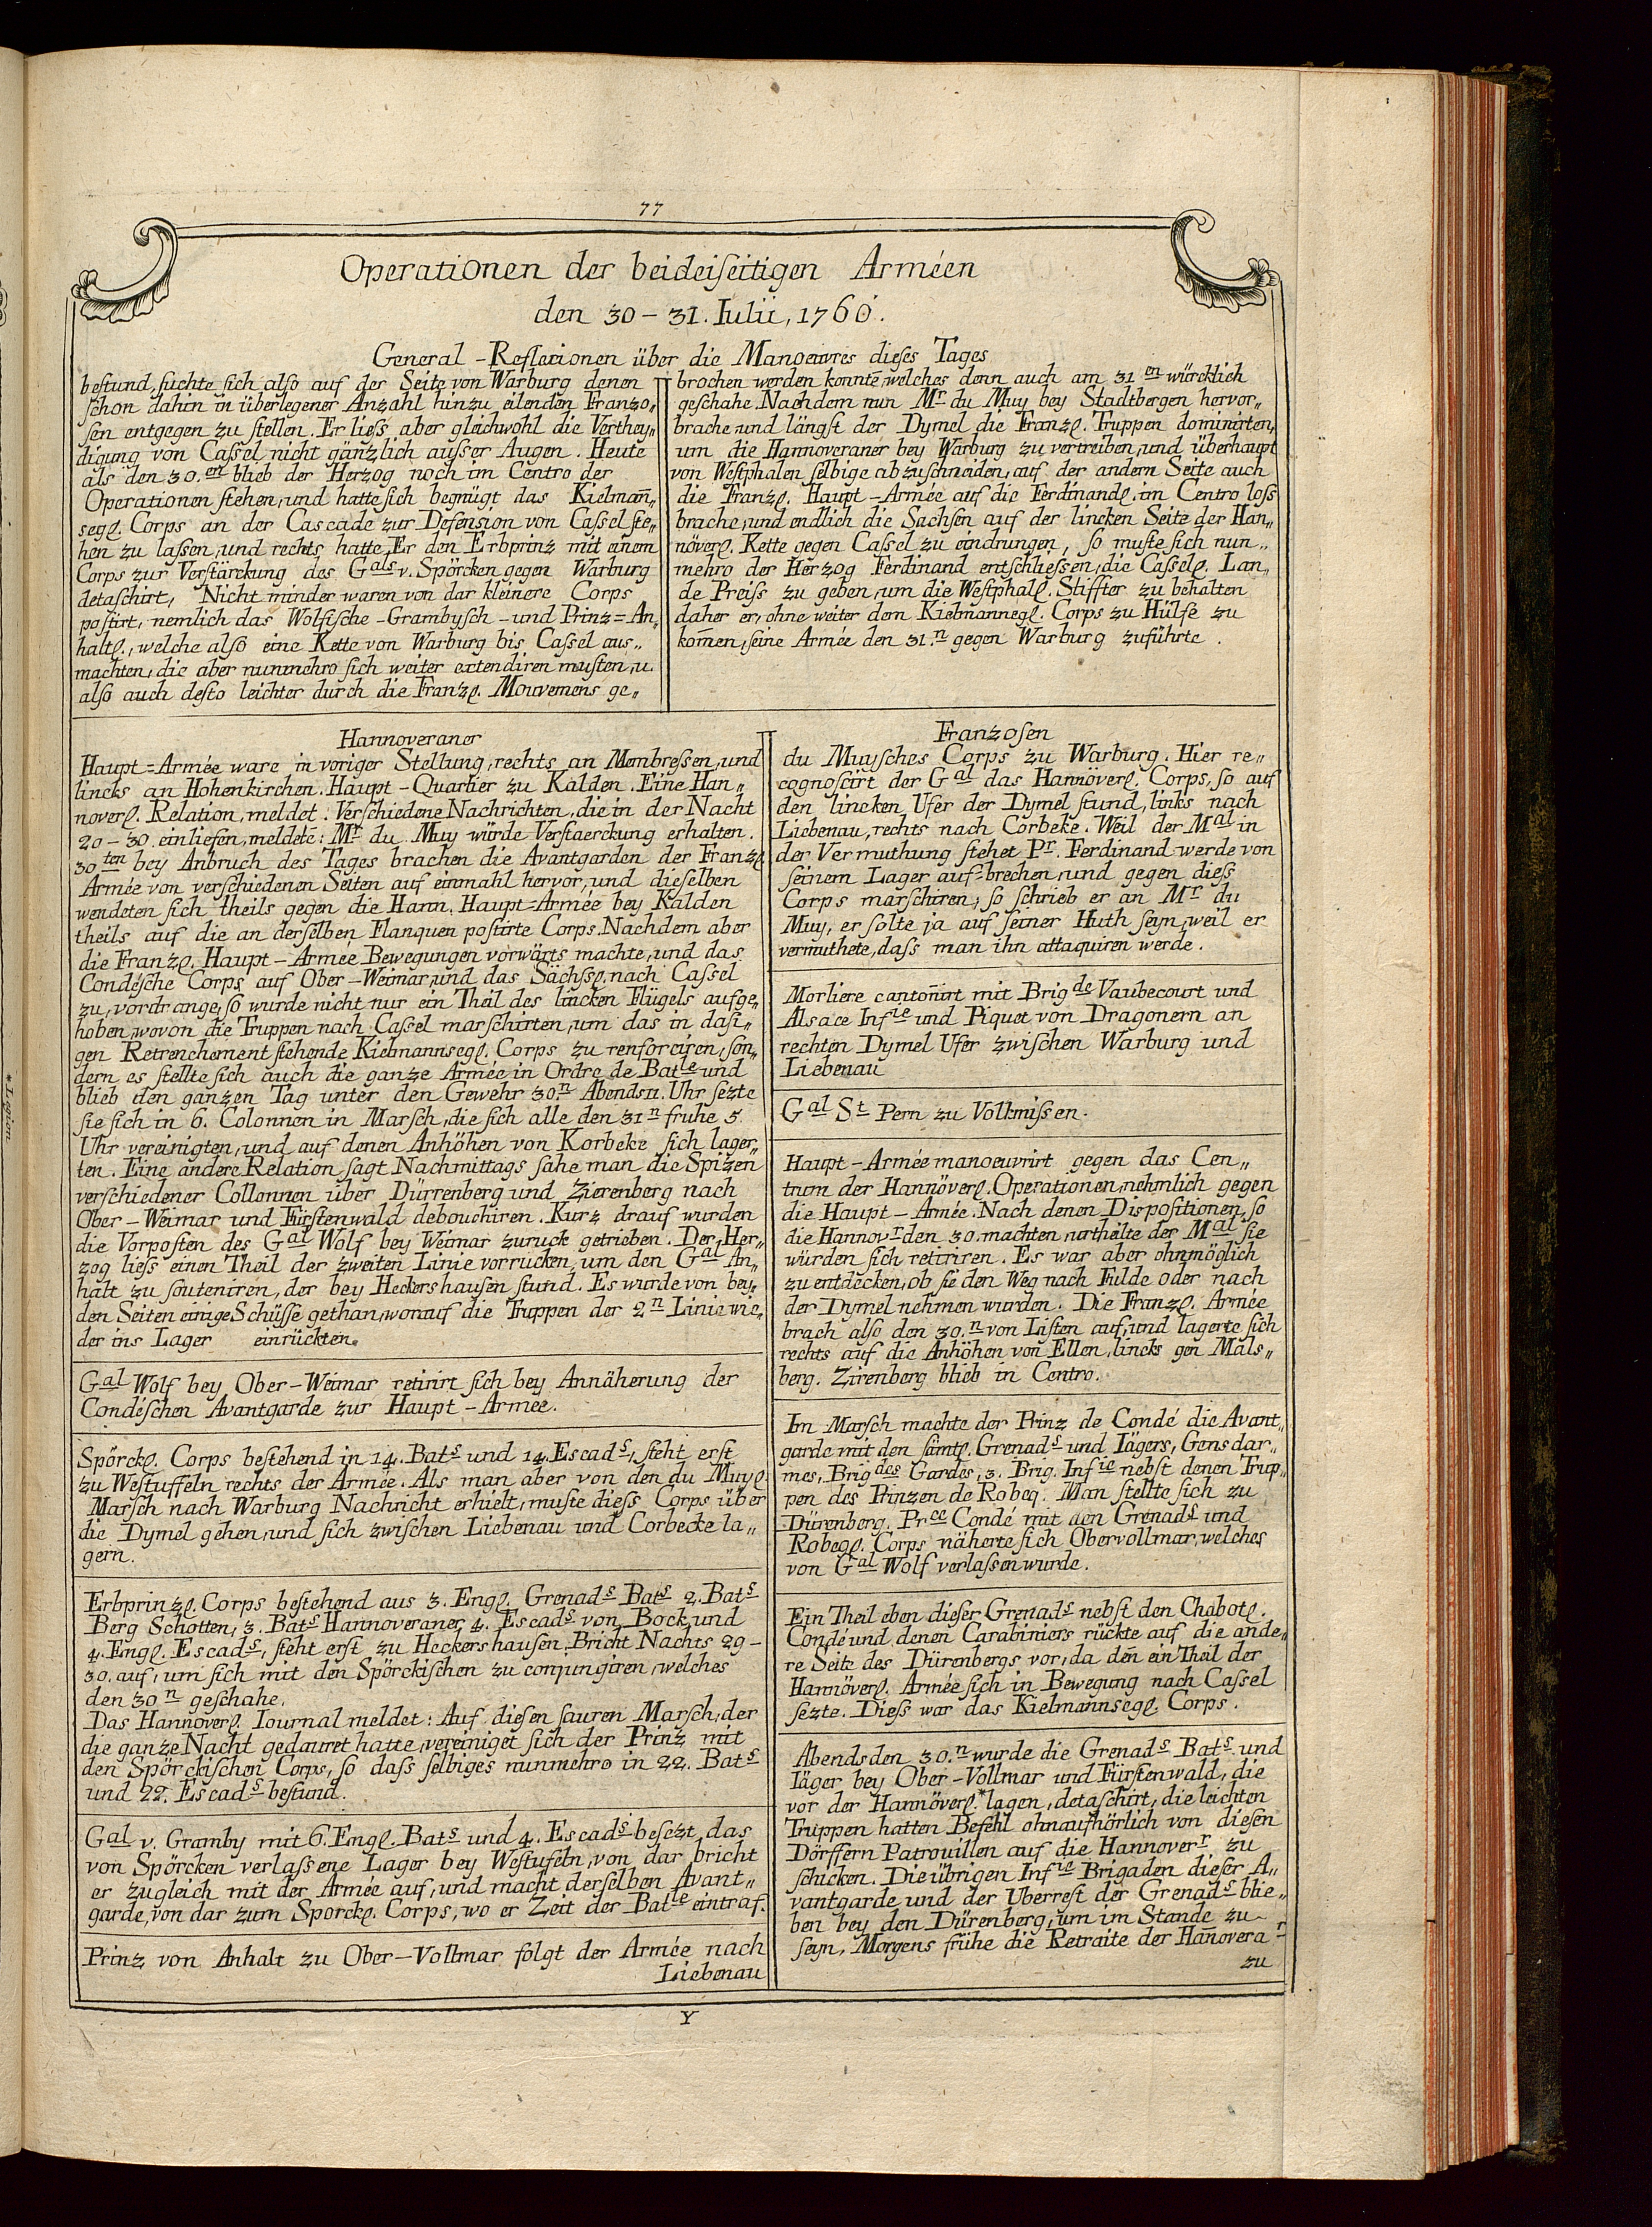 77
Operationen der beideiſeitigen Arméen
den 30 – 31. Iulii, 1760.
General – Reflexionen über die Manoeuvres dieſes Tages
beſtund, ſuchte ſich alſo auf der Seite von Warburg denen
ſchon dahin in überlegener Anzahl hinzu eilenden Franzo„
ſen entgegen zu ſtellen. Er lieſs aber gleichwohl die Verthey„
digung von Caſsel nicht gänzlich auſser Augen. Heute
als den 30.en blieb der Herzog noch im Centro der
Operationen ſtehen, und hatte ſich begnügt das Kielmañ„
segl. Corps an der Cascade zur Defension von Caſsel ſte„
hen zu laſsen, und rechts hatte Er den Erbprinz mit einem
Corps zur Verſtärckung des Gals v. Spörcken gegen Warburg
detaſchirt, Nicht minder waren von dar kleinere Corps
poſtirt, nemlich das Wolfiſche – Grambyſch – und Prinz = An„
haltl., welche alſo eine Kette von Warburg bis Caſsel aus„
machten, die aber nunmehro ſich weiter extendiren muſten, u.
alſo auch deſto leichter durch die Franzl. Mouvemens ge„
brochen werden konnte, welches denn auch am 31 en würcklich
geſchahe. Nachdem nun Mr. du Muy bey Stadtbergen hervor„
brache und längſt der Dymel die Franzl. Truppen dominirten,
um die Hannoveraner bey Warburg zu vertreiben, und überhaupt
von Weſtphalen ſelbige abzuſchneiden, auf der andern Seite auch
die Franzl. Haupt – Armée auf die Ferdinandl. im Centro loſs
brache, und endlich die Sachſen auf der lincken Seite der Han„
növerl. Kette gegen Caſsel zu eindrungen, ſo muſte ſich nun„
mehro der Herzog Ferdinand entſchlieſsen, die Caſsell. Lan„
de Preiſs zu geben, um die Weſtphall. Stiffter zu behalten
daher er, ohne weiter dem Kielmannegl. Corps zu Hülfe zu
kom̄en, ſeine Armée den 31.n gegen Warburg zuführte.
Hannoveraner
Haupt = Armée ware in voriger Stellung, rechts an Membreſsen, und
lincks an Hohenkirchen. Haupt – Quartier zu Kalden. Eine Han„
noverl. Relation, meldet: Verſchiedene Nachrichten, die in der Nacht
29 – 30. einliefen, meldetē: Mr. du Muy würde Verſtaerckung erhalten.
30ten bey Anbruch des Tages brachen die Avantgarden der Franzl.
Armée von verſchiedenen Seiten auf einmahl hervor, und dieſelben
wendeten ſich theils gegen die Hann. Haupt = Armée bey Kalden
theils auf die an derſelben Flanquen poſtirte Corps. Nachdem aber
die Franzl. Haupt – Armee Bewegungen vorwärts machte, und das
Condéſche Corps auf Ober – Weimar, und das Sächſsl. nach Caſsel
zu, vordrange, ſo wurde nicht nur ein Theil des lincken Flügels aufge„
hoben, wovon die Truppen nach Caſsel marſchirten, um das in daſi„
gen Retrenchement ſtehende Kielmannsegl. Corps zu renforciren, ſon„
dern es ſtellte ſich auch die ganze Armée in Ordre de Batle und
blieb den ganzen Tag unter den Gewehr 30.n Abends 11. Uhr ſezte
ſie ſich in 6. Colonnen in Marſch, die ſich alle den 31 n fruhe 5
Uhr vereinigten, und auf denen Anhöhen von Korbeke ſich lager„
ten. Eine andere Relation ſagt Nachmittags ſahe man die Spizen
verſchiedener Collonnen über Dürrenberg und Zierenberg nach
Ober – Weimar und Fürſtenwald debouchiren. Kurz drauf wurden
die Vorpoſten des Gal Wolf bey Weimar zuruck getrieben. Der Her„
zog lieſs einen Theil der zweiten Linie vorrucken, um den Gal An„
halt zu ſouteniren, der bey Heckershauſen ſtund. Es wurde von bey„
den Seiten einige Schüſse gethan, worauf die Truppen der 2n Linie wie„
der ins Lager einrückten.
Gal Wolf bey Ober – Weimar retirirt ſich bey Annäherung der
Condéſchen Avantgarde zur Haupt – Armee.
Spörckl. Corps beſtehend in 14. Bats und 14. Escads, ſteht erſt
zu Weſtuffeln rechts der Armée. Als man aber von den du Muyl.
Marſch nach Warburg Nachricht erhielt, muſte dieſs Corps über
die Dymel gehen, und ſich zwiſchen Liebenau und Corbecke la„
gern.
Erbprinzl. Corps beſtehend aus 3. Engl. Grenads Bats 2. Bats
Berg Schotten, 3. Bats Hannoveraner, 4. Escads von Bock und
4. Engl. Escads, ſteht erſt zu Heckershauſen. Bricht Nachts 29 –
30. auf, um ſich mit den Spörckiſchen zu conjungiren, welches
den 30 n geſchahe.
Das Hannöverl. Iournal meldet: Auf dieſen ſauren Marſch, der
die ganze Nacht gedauret hatte, vereiniget ſich der Prinz mit
den Spörckiſchen Corps, ſo daſs ſelbiges nunmehro in 22. Bats
und 22. Escads beſtund.
Gal v. Gramby mit 6. Engl. Bats und 4. Escads beſezt das
von Spörcken verlaſsene Lager bey Weſtufeln, von dar bricht
er zugleich mit der Armée auf, und macht derſelben Avant„
garde, von dar zum Sporckl. Corps, wo er Zeit der Batle eintraf.
Prinz von Anhalt zu Ober – Vollmar folgt der Armée nach
Liebenau
Franzoſen
du Muyſches Corps zu Warburg. Hier re„
cognoſcirt der Gal das Hannöverl. Corps, ſo auf
den lincken Ufer der Dymel ſtund, links nach
Liebenau, rechts nach Corbeke. Weil der Mal in
der Vermuthung ſtehet Pr. Ferdinand werde von
ſeinem Lager auf = brechen, und gegen dieſs
Corps marſchiren, ſo ſchrieb er an Mr du
Muy, er ſolte ja auf ſeiner Huth ſeyn, weil er
vermuthete, daſs man ihn attaquiren werde.
Morliere cantoñirt mit Brigde Vaubecourt und
Alsace Infie und Piquet von Dragonern an
rechten Dymel Ufer zwiſchen Warburg und
Liebenau
Gal St Pern zu Volkmiſsen.
Haupt – Armée manoeuvrirt gegen das Cen„
trum der Hannöverl. Operationen, nehmlich gegen
die Haupt – Armée. Nach denen Dispoſitionen, ſo
die Hannovr den 30. machten, urtheilte der Mal ſie
würden ſich retiriren. Es war aber ohnmöglich
zu entdecken, ob ſie den Weg nach Fulde oder nach
der Dymel nehmen wurden. Die Franzl. Armée
brach alſo den 30.n von Liſten auf, und lagerte ſich
rechts auf die Anhöhen von Ellen, lincks gen Mals„
berg. Zirenberg blieb in Centro.
Im Marſch machte der Prinz de Condé die Avant„
garde mit den ſämtl. Grenads und Iägers, Gensdar„
mes, Brigdes Gardes, 3. Brig. Infie nebſt denen Trup„
pen des Prinzen de Robeq. Man ſtellte ſich zu
Dürenberg. Prce Condé mit den Grenads und
Robeql. Corps näherte ſich Obervollmar, welches
von Gal Wolf verlaſsen wurde.
Ein Theil eben dieſer Grenads nebſt den Chabotl.
Condé und denen Carabiniers rückte auf die ande„
re Seite des Dürenbergs vor, da deñ ein Theil der
Hannöverl. Armée ſich in Bewegung nach Caſsel
ſezte. Dieſs war das Kielmannsegl. Corps.
Abends den 30.n wurde die Grenads Bats und
Iäger bey Ober – Vollmar und Fürſtenwald, die
vor der Hannöverl.* lagen, detaſchirt, die leichten
Truppen hatten Befehl ohnaufhörlich von dieſen
Dörffern Patrouillen auf die Hannoverr. zu
ſchicken. Die übrigen Infie Brigaden dieſer A„
vantgarde und der Uberreſt der Grenads blie„
ben bey den Dürenberg, um im Stande zu
ſeyn, Morgens frühe die Retraite der Hañoverar
zu
Y
* Legion